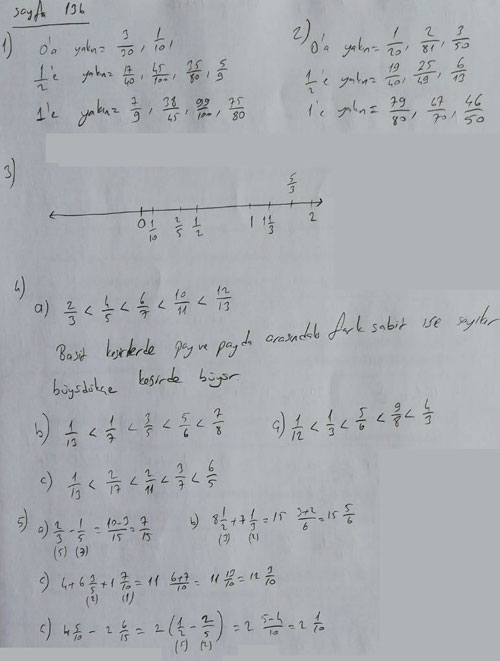 sayfa 136
1) 0'a yakın = 3/30, 1/10,
1/2'e yakın = 17/40, 45/100, 35/80, 5/9
1'e yakın = 7/9, 38/45, 99/100, 75/80
2) 0'a yakın = 1/20, 2/81, 3/50
1/2'e yakın = 19/40, 25/49, 6/13
1'e yakın = 79/80, 67/70, 46/50
3)
5/3
0 1/10 2/5 1/2 1 1 1/3 2
4)
a) 2/3 < 4/5 < 6/7 < 10/11 < 12/13
Basit kesirlerde pay ve payda arasındaki fark sabit ise sayılar
büyüdükçe kesirde büyür
b) 1/13 < 1/7 < 3/5 < 5/6 < 7/8
ç) 1/12 < 1/3 < 5/6 < 9/8 < 4/3
c) 1/13 < 2/17 < 2/11 < 3/7 < 6/5
5) a) 2/3 - 1/5 = 10-3/15 = 7/15
(5) (7)
b) 8 1/2 + 7 1/3 = 15 3+2/6 = 15 5/6
(3) (2)
c) 4 + 6 3/5 + 1 7/10 = 11 6+7/10 = 11 13/10 = 12 3/10
(2) (1)
ç) 4 5/10 - 2 6/15 = 2 (1/2 - 2/5) = 2 5-4/10 = 2 1/10
(5) (2)